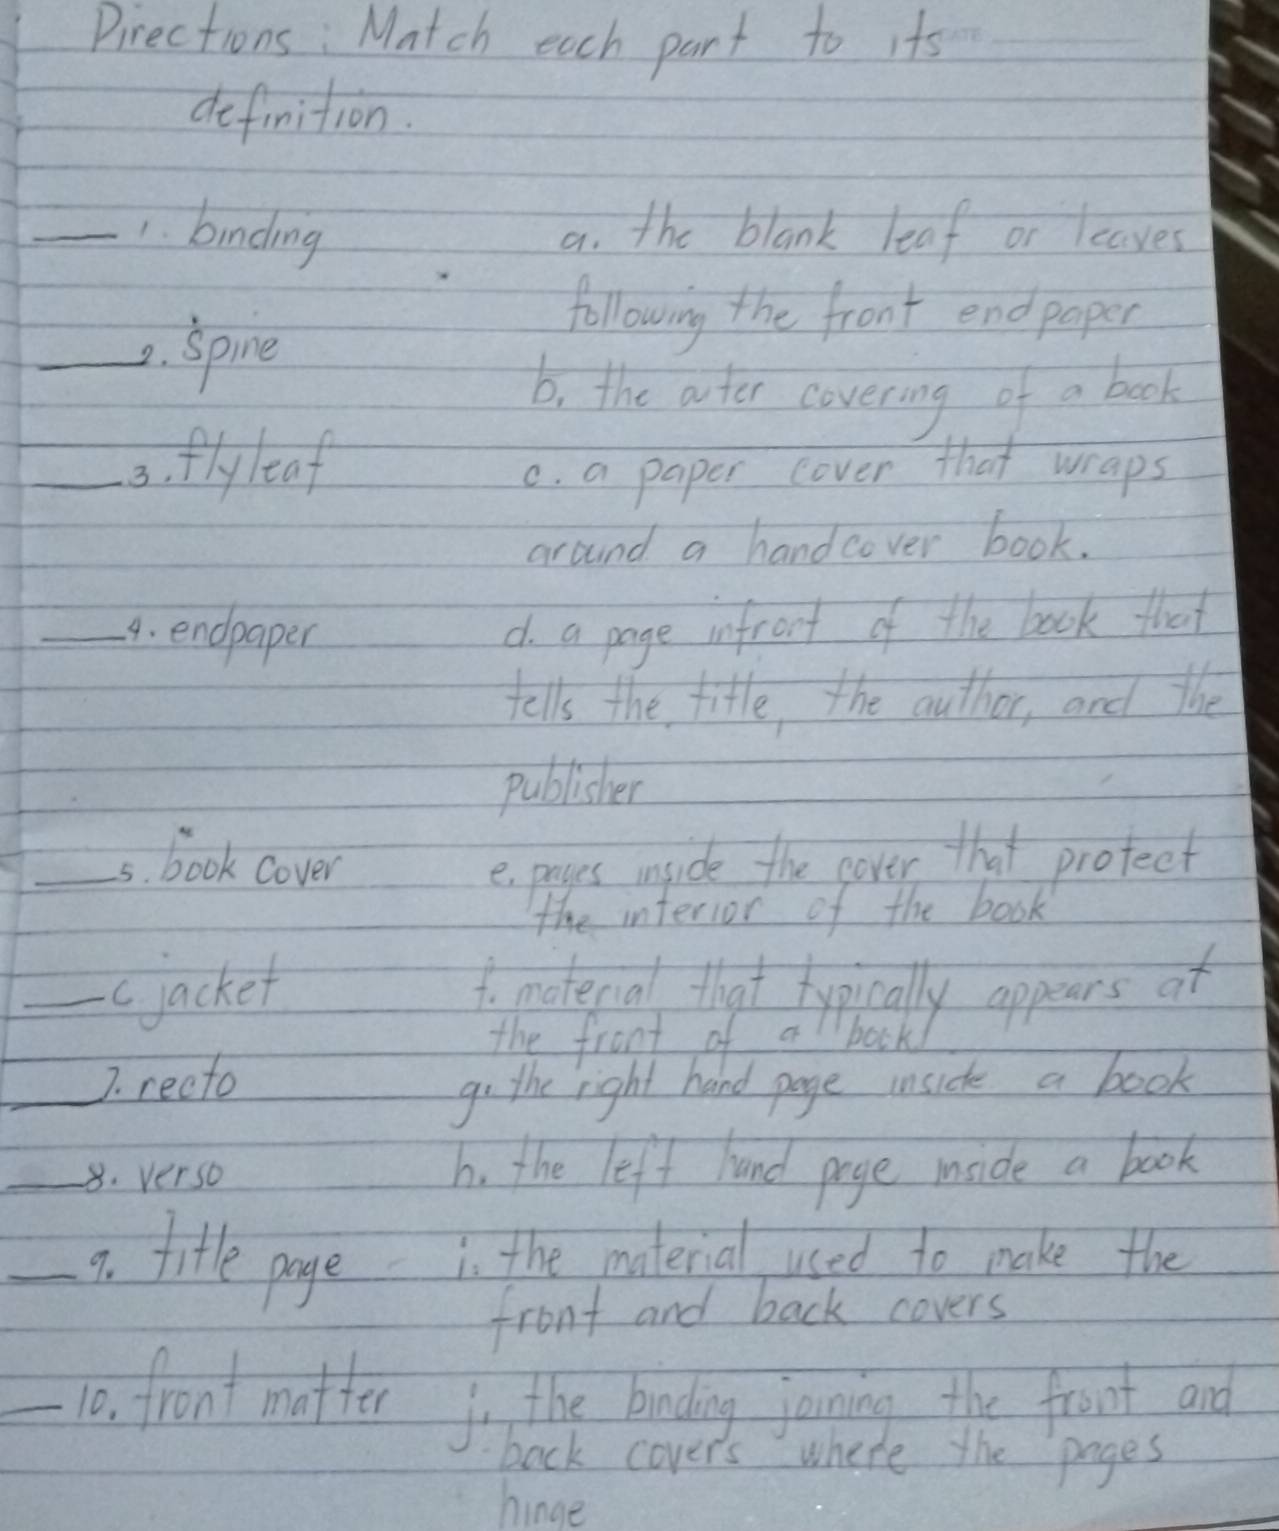 Directions: Match each part to its
definition.
1. binding
a. the blank leaf or leaves
following the front endpaper
2. spine
b. the outer covering of a book
3. flyleaf
c. a paper cover that wraps
around a handcover book.
4. endpaper
d. a page infront of the book that
tells the title, the author, and the
publisher
5. book cover
e. pages inside the cover that protect
the interior of the book
6. jacket
f. material that typically appears at
the front of a book
7. recto
g. the right hand page inside a book
8. verso
h. the left hand page inside a book
9. title page
i. the material used to make the
front and back covers
10. front matter
j. the binding joining the front and
back covers where the pages
hinge